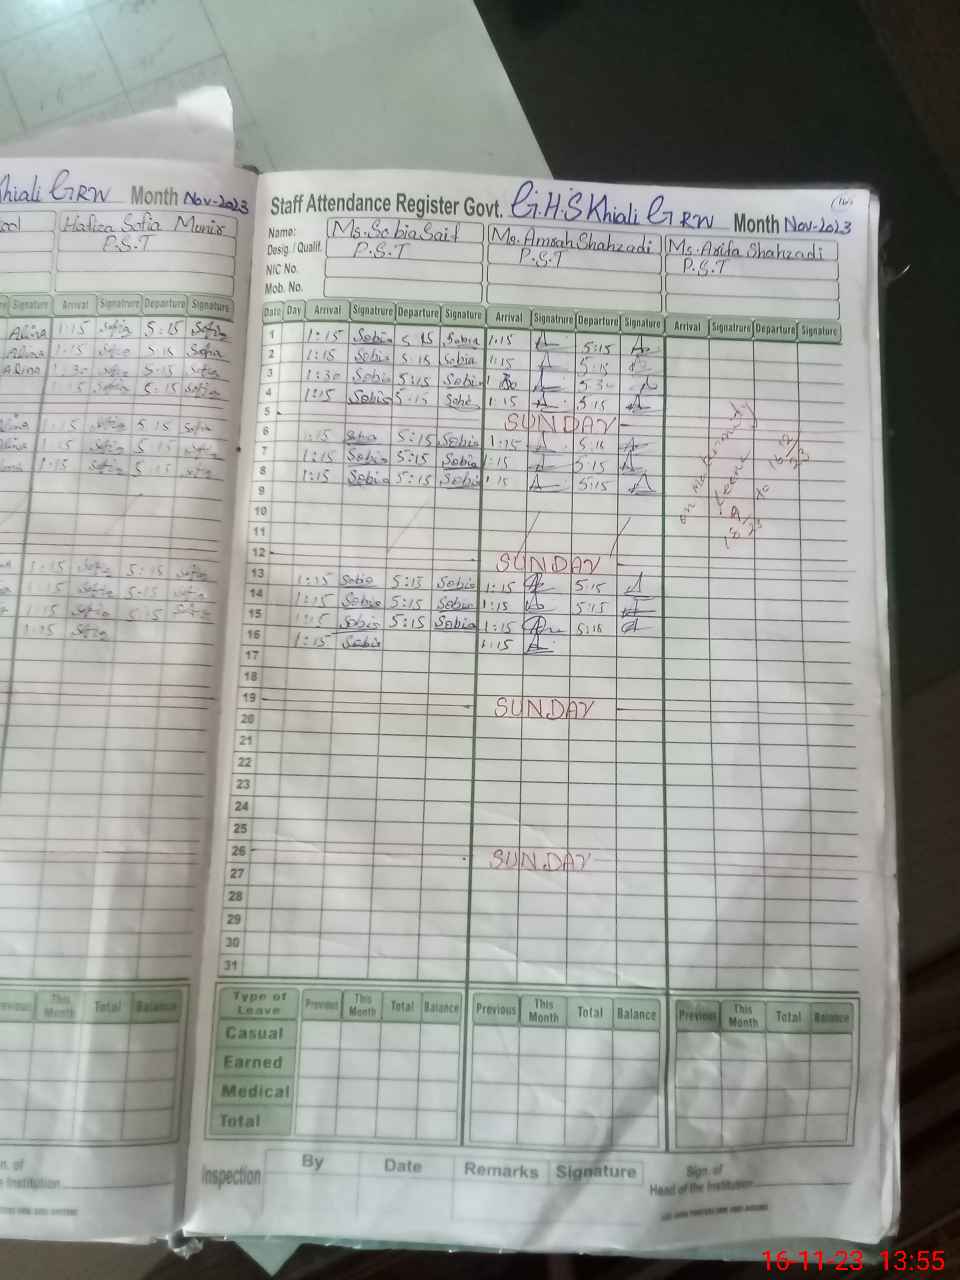 Khiali GRW Month Nov-2023
Hafiza Sofia Munir
P.S.T
Signature Arrival Signature Departure Signature
Alina 1:15 Sofia 5:15 Sofia
Alina 1:15 Sofia 5:15 Sofia
Alina 1:30 Sofia 5:15 Sofia
1:15 Sofia 5:15 Sofia
Alina 1:15 Sofia 5:15 Sofia
Alina 1:15 Sofia 5:15 Sofia
1:15 Sofia 5:15 Sofia
1:15 Sofia 5:15 Sofia
1:15 Sofia 5:15 Sofia
1:15 Sofia 5:15 Sofia
1:15 Sofia
Previous This Month Total Balance
Staff Attendance Register Govt. G.H.S Khiali GRW Month Nov-2023
Name: Ms. Sobia Saif Ms. Amnah Shahzadi Ms. Asifa Shahzadi
Desig / Qualif. P.S.T P.S.T P.S.T
NIC No.
Mob. No.
Date Day Arrival Signature Departure Signature Arrival Signature Departure Signature Arrival Signature Departure Signature
1 1:15 Sobia 5:15 Sobia 1:15 5:15
2 1:15 Sobia 5:15 Sobia 1:15 5:15
3 1:30 Sobia 5:15 Sobia 1:30 5:30
4 1:15 Sobia 5:15 Sobia 1:15 5:15
5 SUNDAY
6 1:15 Sobia 5:15 Sobia 1:15 5:15
7 1:15 Sobia 5:15 Sobia 1:15 5:15
8 1:15 Sobia 5:15 Sobia 1:15 5:15
9
10
11
12 SUNDAY
13 1:15 Sobia 5:15 Sobia 1:15 5:15
14 1:15 Sobia 5:15 Sobia 1:15 5:15
15 1:15 Sobia 5:15 Sobia 1:15 5:15
16 1:15 Sobia 1:15
17
18
19 SUNDAY
20
21
22
23
24
25
26 SUNDAY
27
28
29
30
31
on maternity
leave
Type of Leave Previous This Month Total Balance Previous This Month Total Balance Previous This Month Total Balance
Casual
Earned
Medical
Total
Inspection By Date Remarks Signature
Sign. of
Head of the Institution
16-11-23 13:55